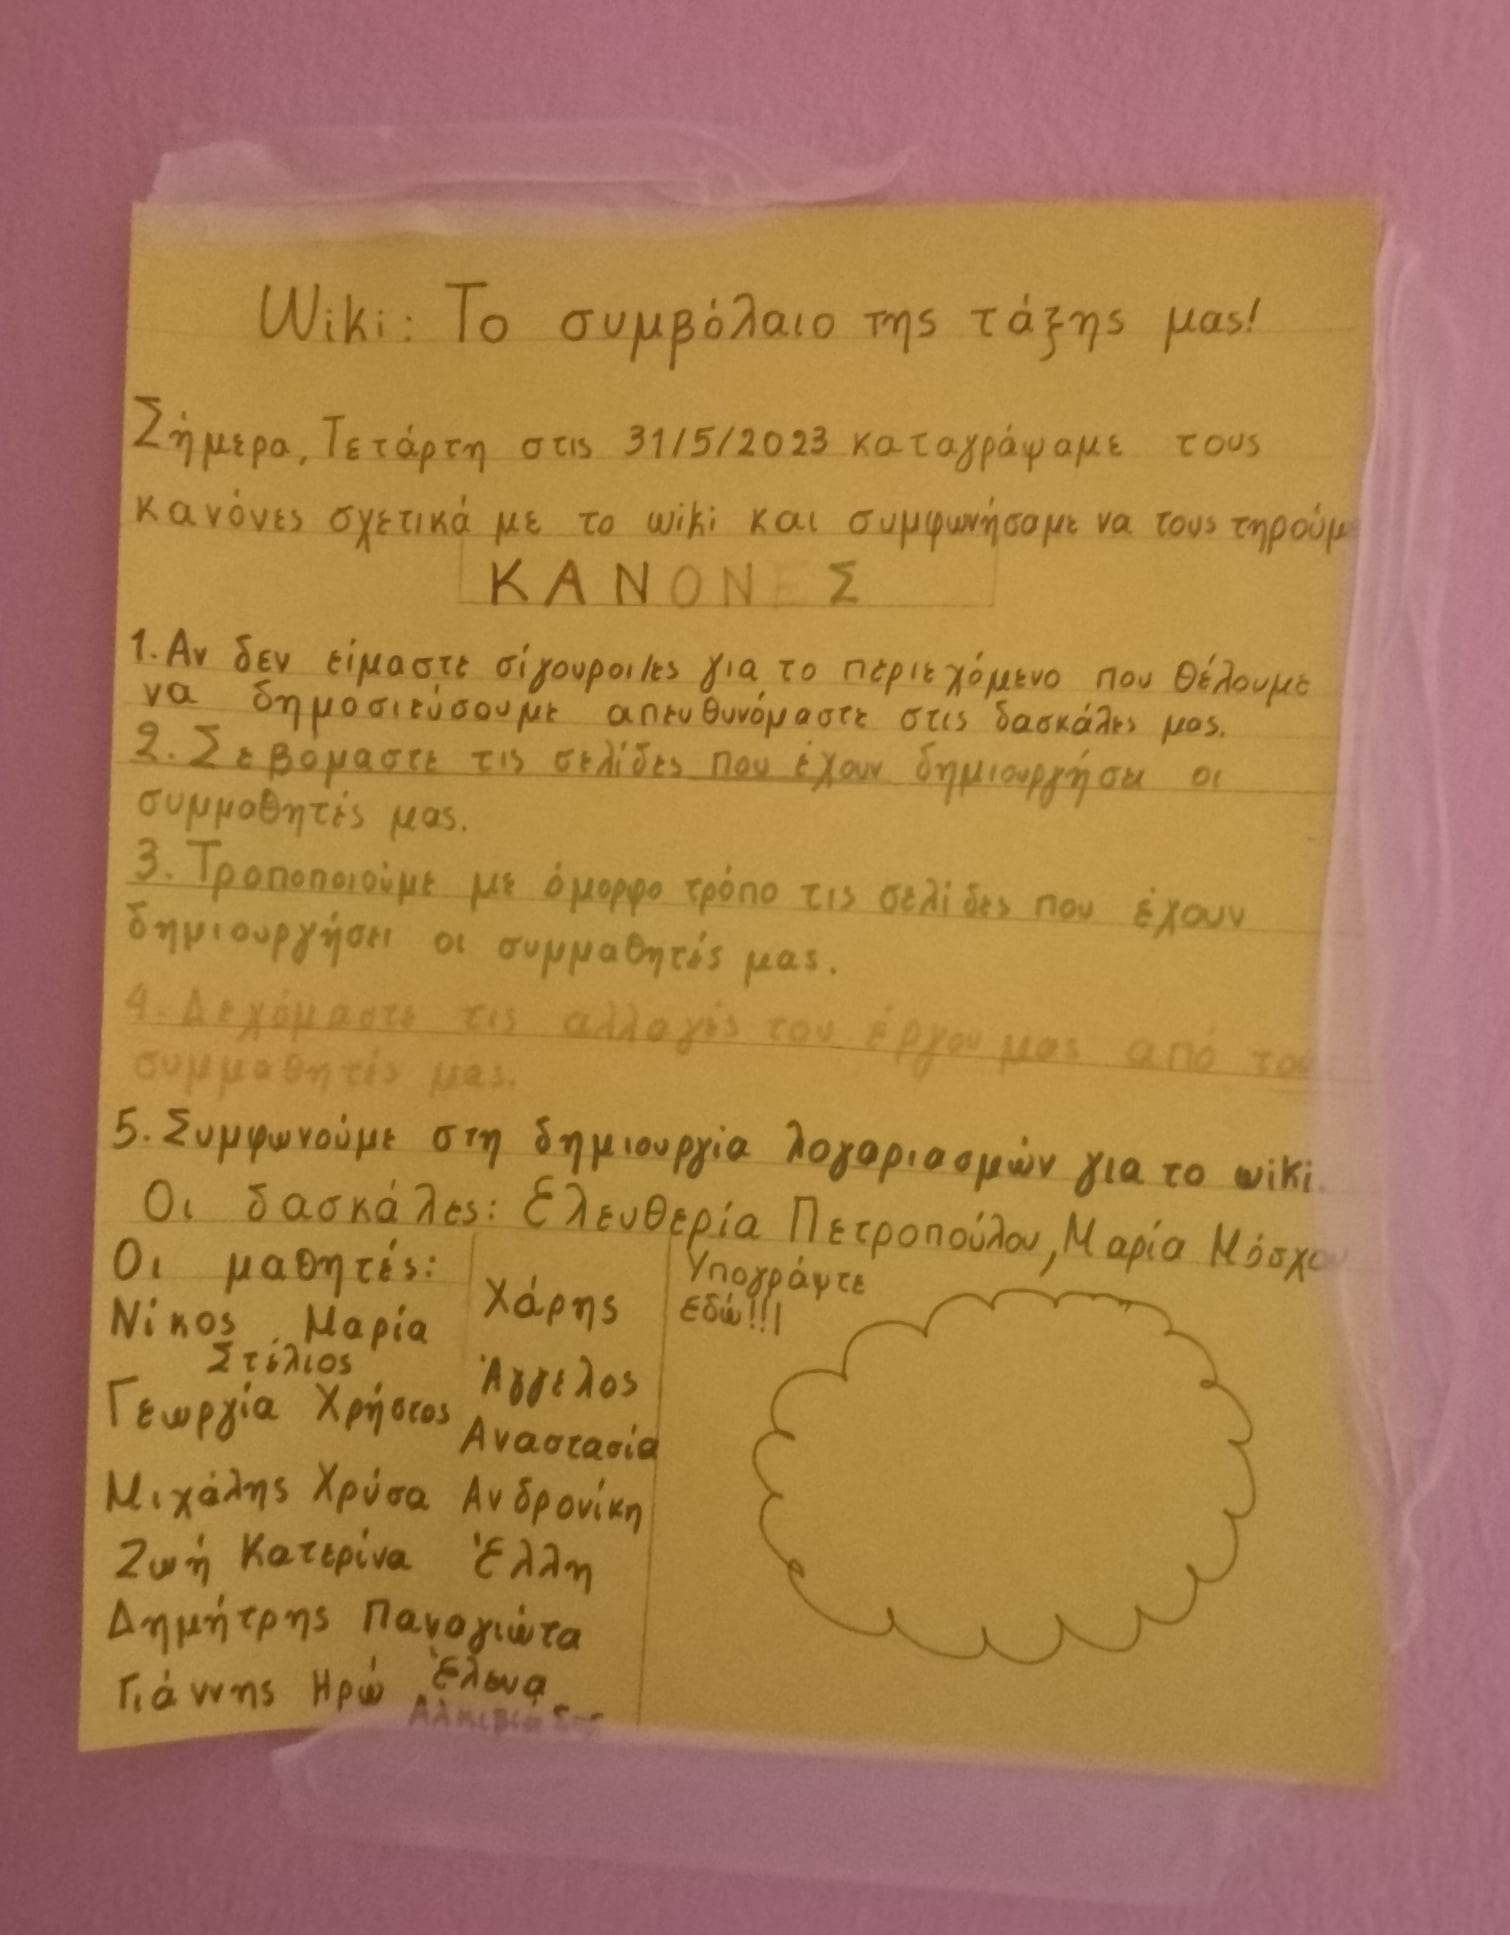 Wiki: Το συμβόλαιο της τάξης μας!
Σήμερα, Τετάρτη στις 31/5/2023 καταγράψαμε τους
κανόνες σχετικά με το wiki και συμφωνήσαμε να τους τηρούμε
ΚΑΝΟΝΕΣ
1. Αν δεν είμαστε σίγουροι/ες για το περιεχόμενο που θέλουμε
να δημοσιεύσουμε απευθυνόμαστε στις δασκάλες μας.
2. Σεβόμαστε τις σελίδες που έχουν δημιουργήσει οι
συμμαθητές μας.
3. Τροποποιούμε με όμορφο τρόπο τις σελίδες που έχουν
δημιουργήσει οι συμμαθητές μας.
4. Δεχόμαστε τις αλλαγές του έργου μας από τους
συμμαθητές μας.
5. Συμφωνούμε στη δημιουργία λογαριασμών για το wiki.
Οι δασκάλες: Ελευθερία Πετροπούλου, Μαρία Μόσχου
Οι μαθητές:
Νίκος Μαρία
Στέλιος
Γεωργία Χρήστος
Μιχάλης Χρύσα Ανδρονίκη
Ζωή Κατερίνα Έλλη
Δημήτρης Παναγιώτα
Γιάννης Ηρώ Έλενα
Αλκιβιάδης
Χάρης
Άγγελος
Αναστασία
Υπογράψτε
εδώ!!!